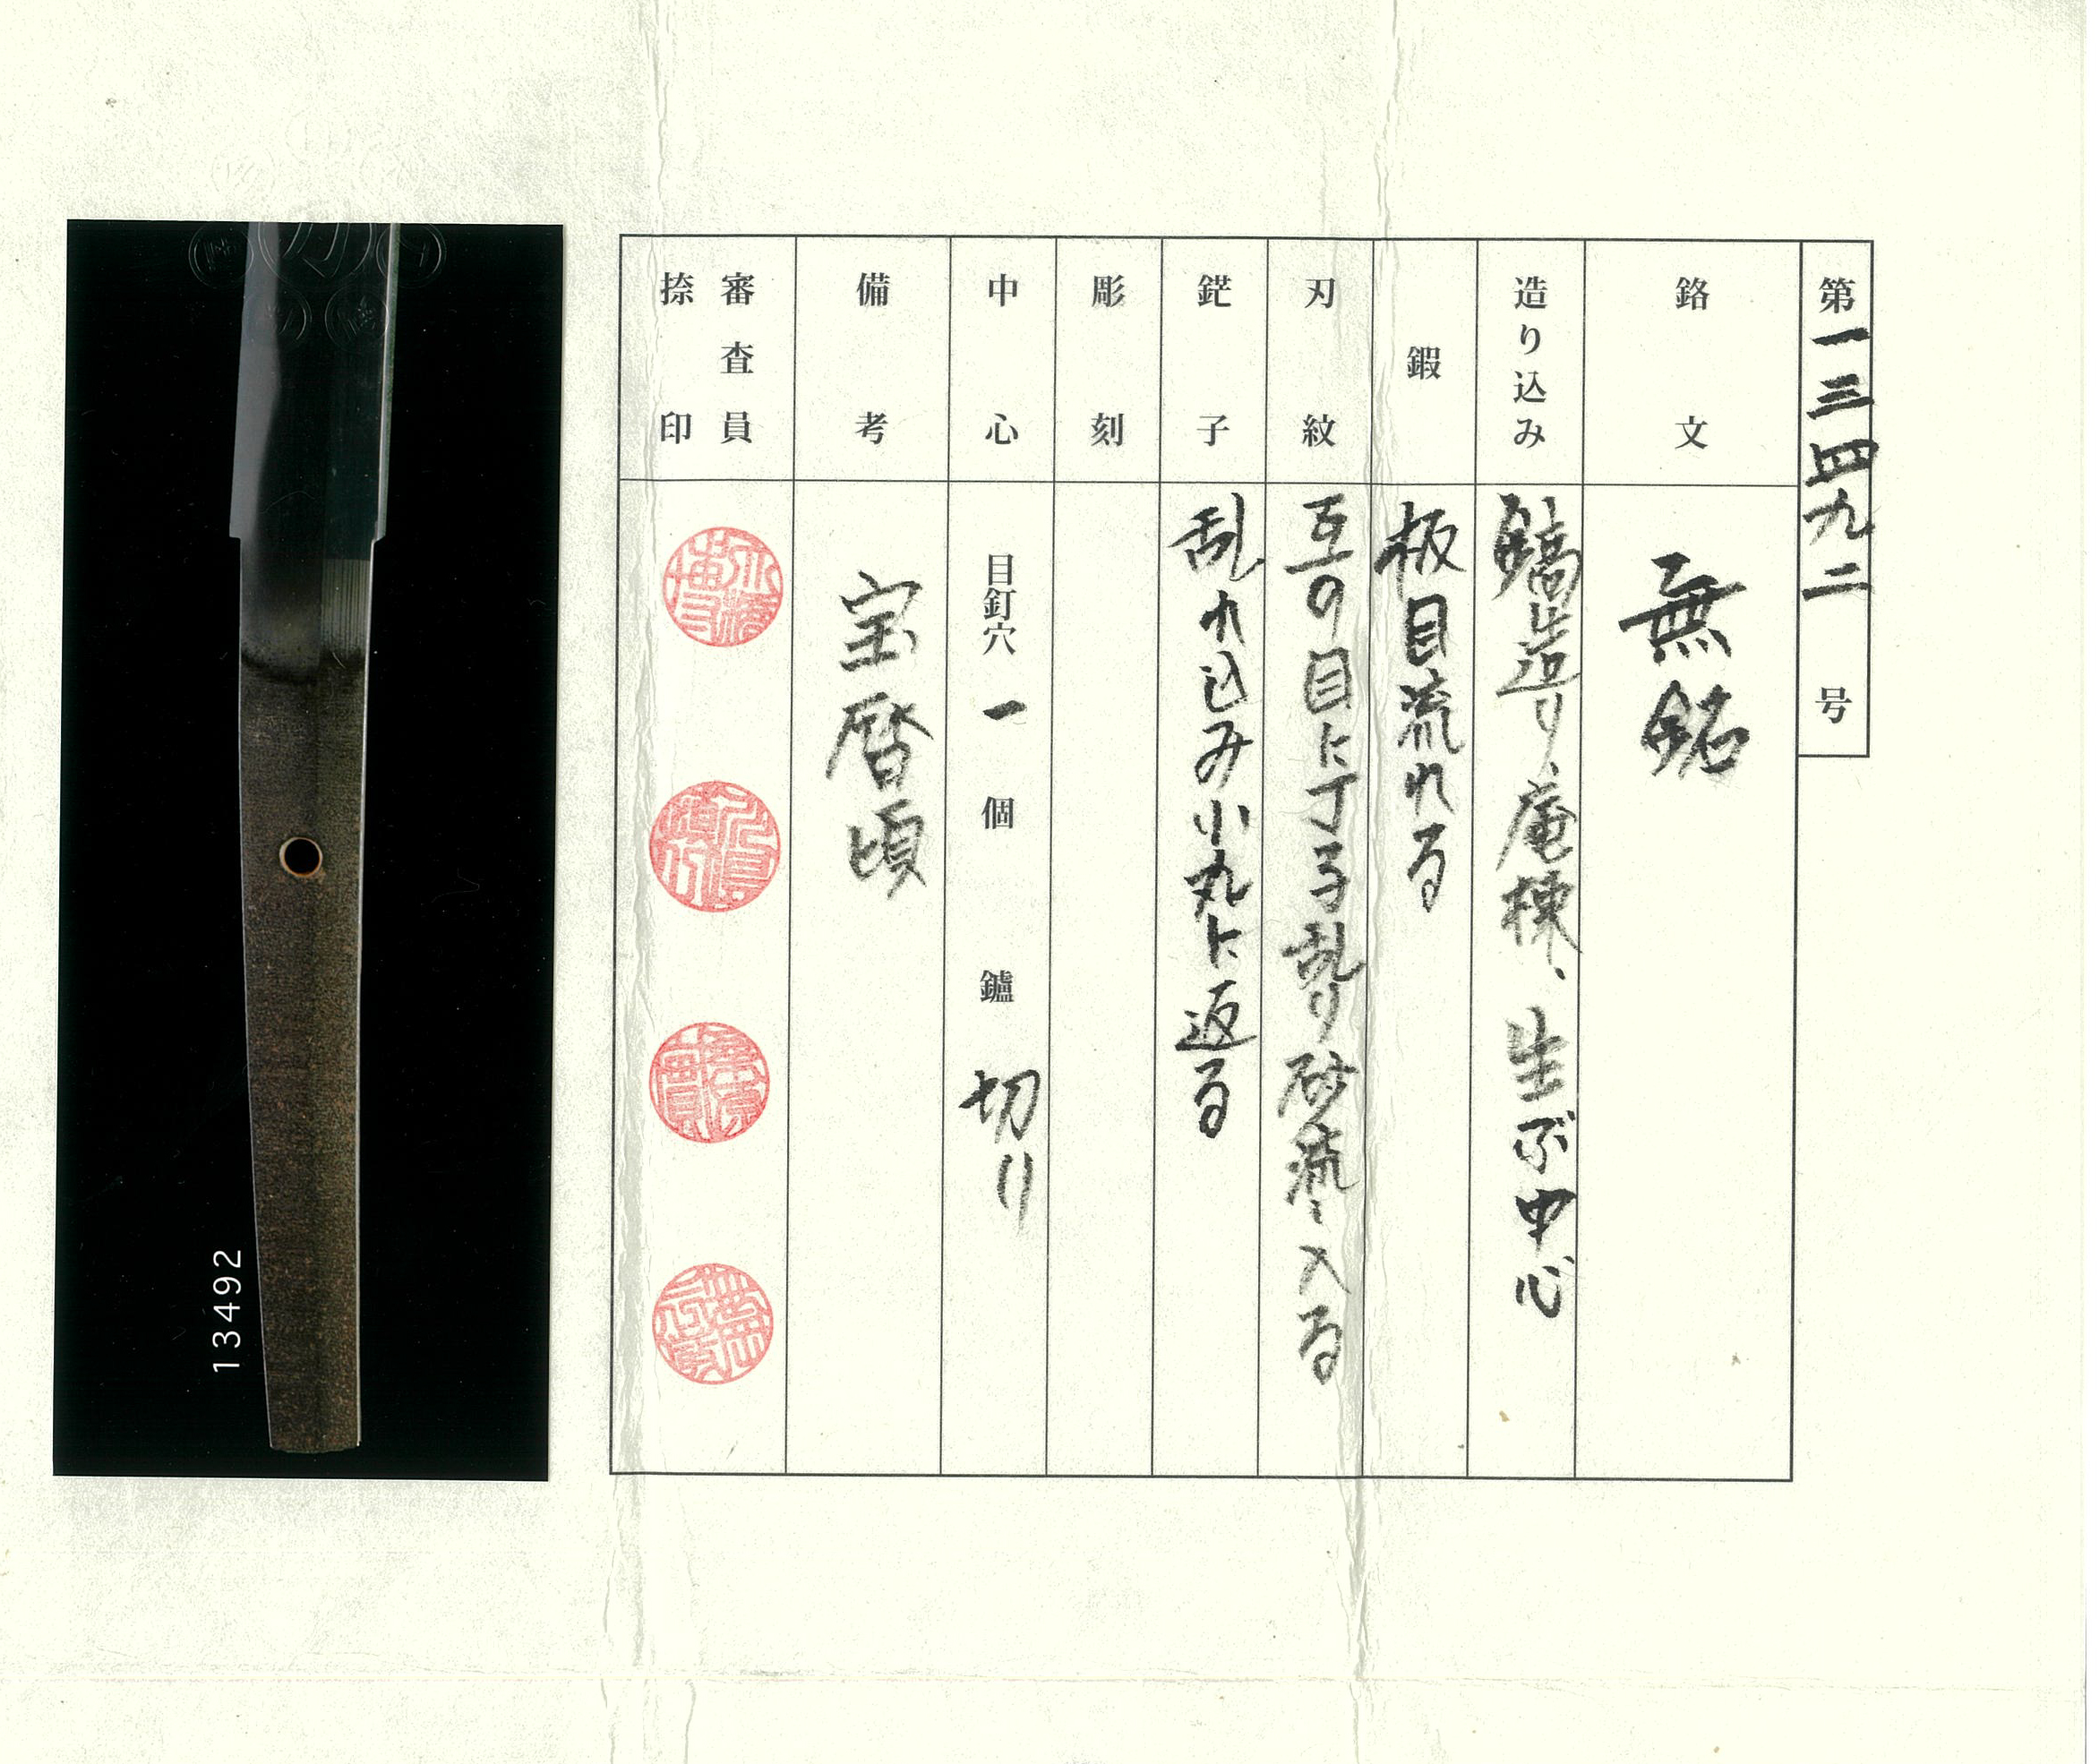 第一三四九二号
銘文 無銘
造り込み 鎬造り、庵棟、生ぶ中心
鍜 板目流れる
刃紋 互の目に丁子乱り砂流し入る
鋩子 乱れ込み小丸に返る
彫刻
中心 目釘穴 一 個 鑢 切り
備考 宝暦頃
審査員
捺印
13492